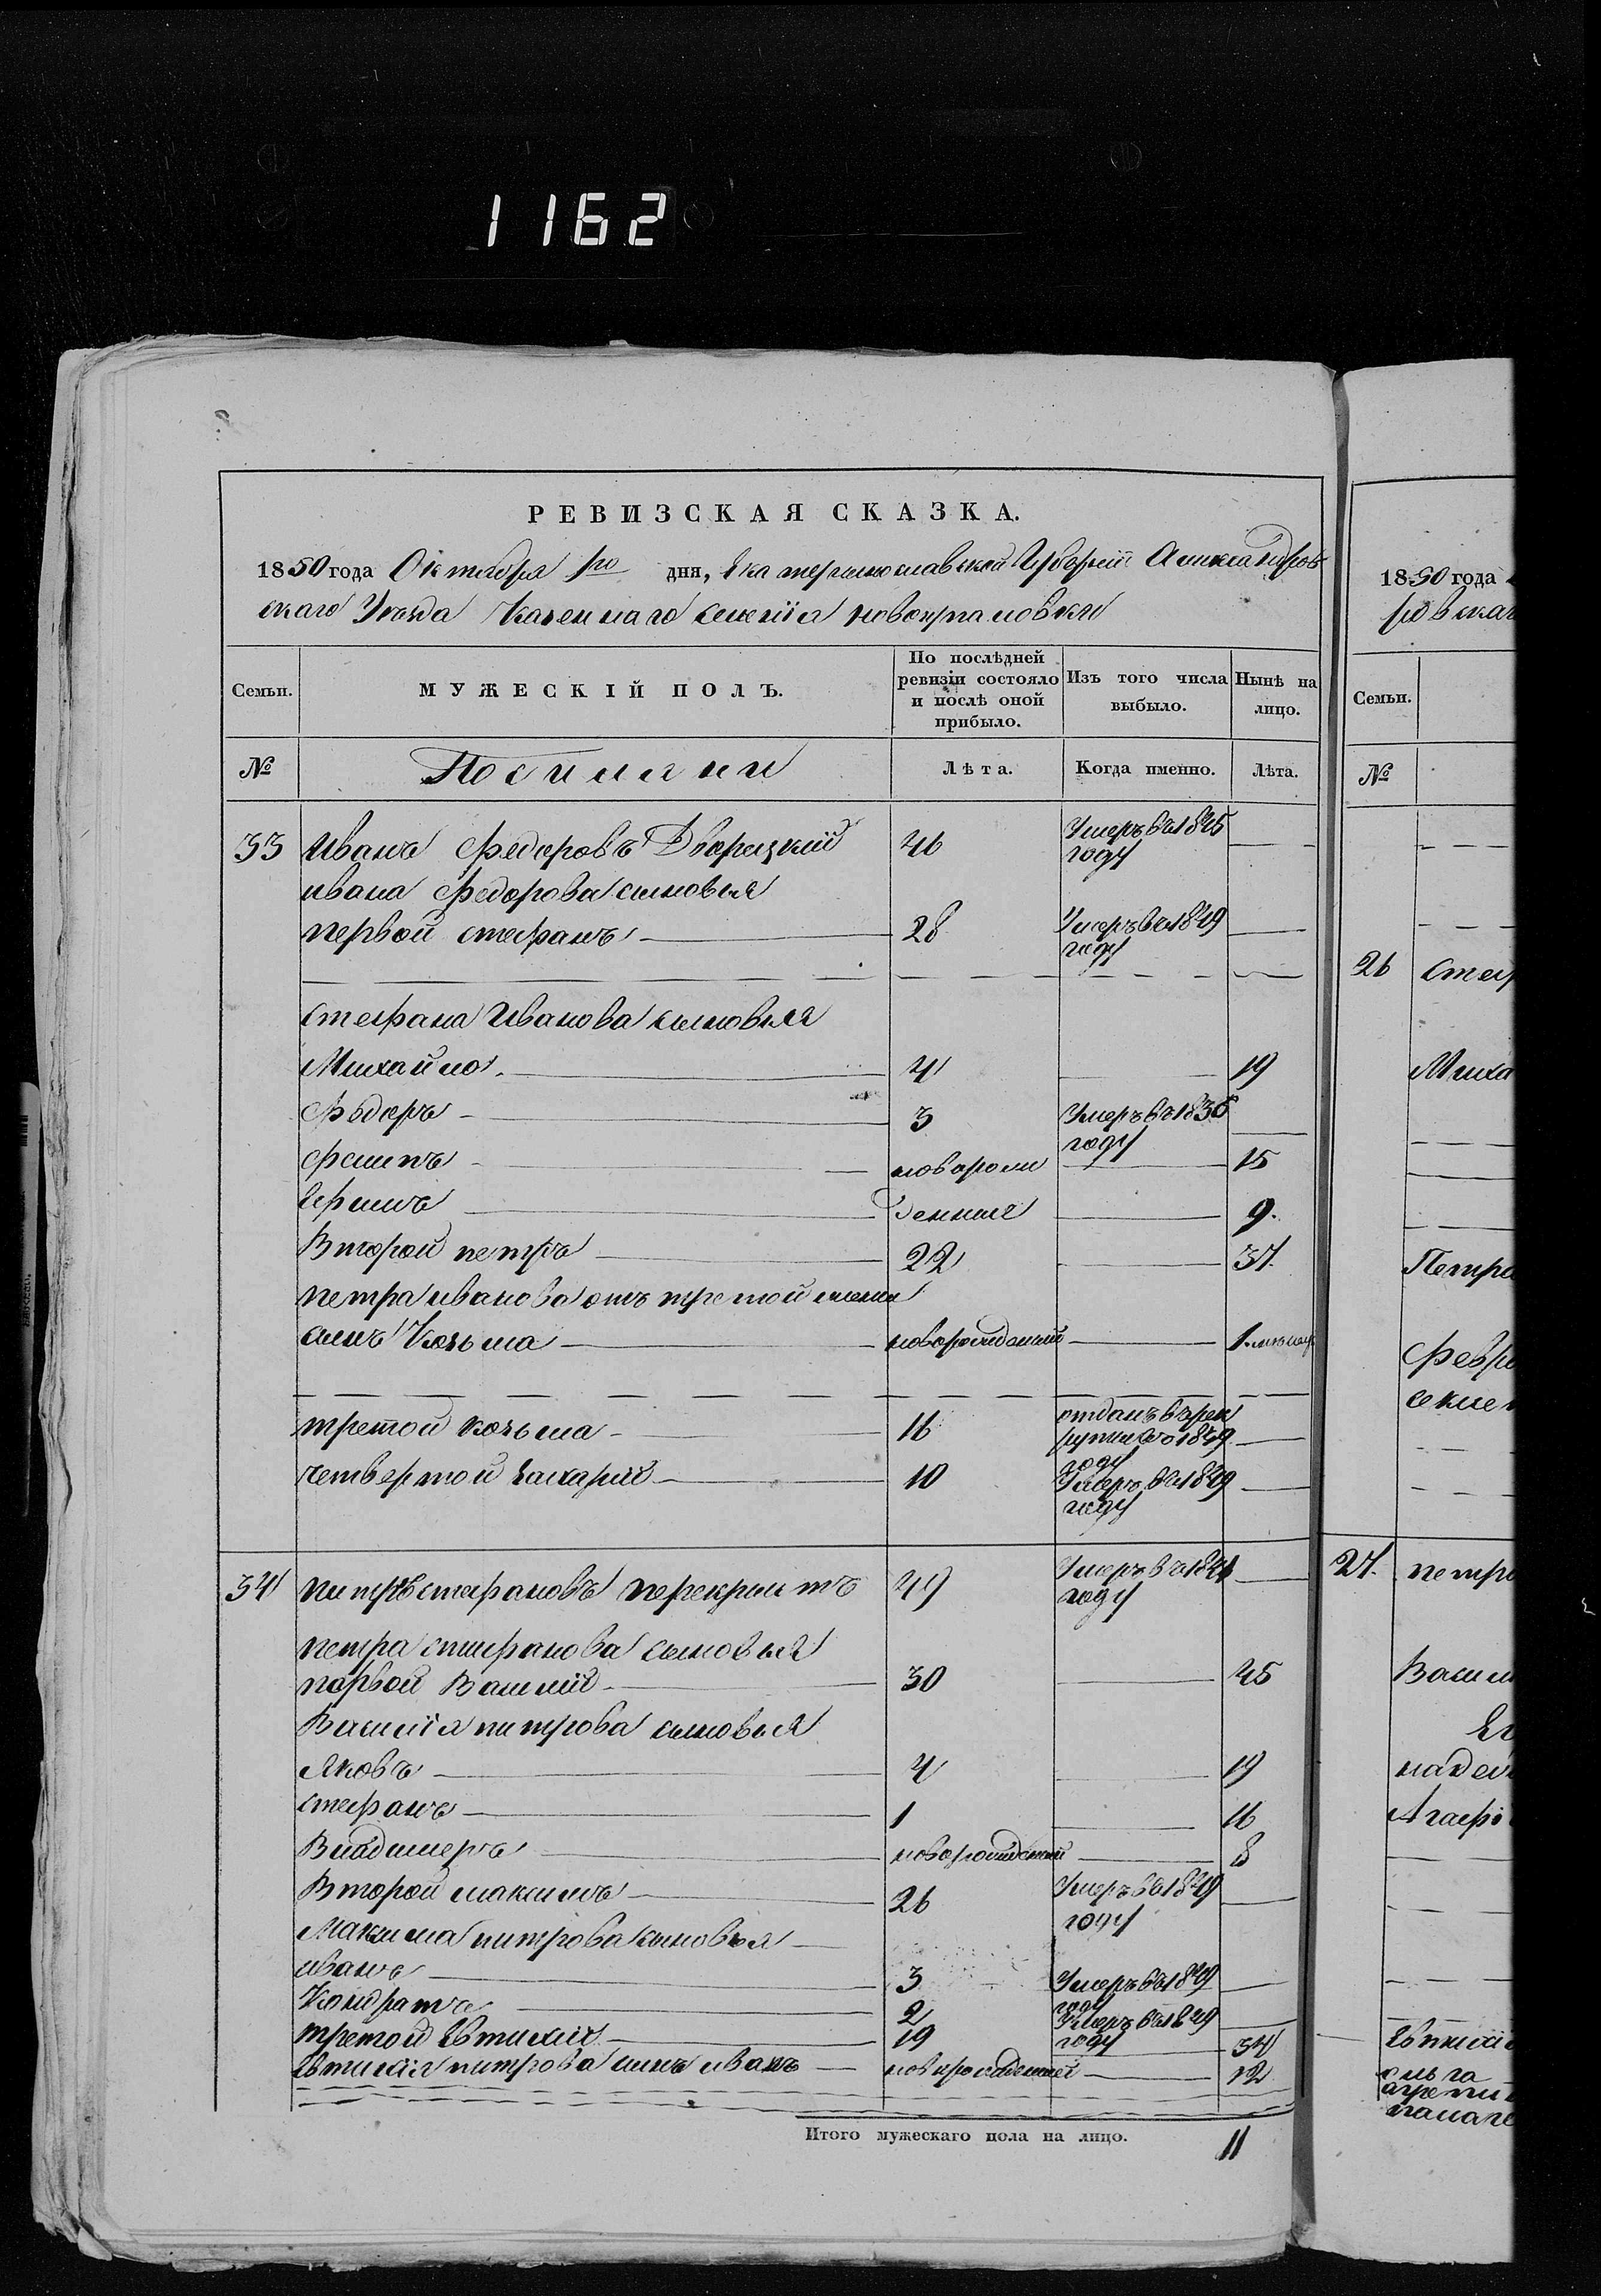 1162
РЕВИЗСКАЯ СКАЗКА.
1850 года Октября 1го дня, Екатеринославской Губернии Александров
скаго Уезда Казеннаго селенiя Новокрамовки
Семьи. МУЖЕСКІЙ ПОЛЪ. По послѣдней ревизіи состояло и послѣ оной прибыло. Изъ того числа выбыло. Нынѣ на лицо.
№ Поселяни Лѣта. Когда именно. Лѣта.
33 Иванъ Федоровъ Дворецкій 46 Умеръ въ 1845 году
ивана Федорова сыновья
первой стефанъ 28 Умеръ въ 1849 году
стефана Иванова сыновья
Михайло 4 19
Федоръ 3 Умеръ въ 1836 году
новорож 15
денныя 9.
Второй петръ 22 37.
петра иванова отъ третой жены
сынъ Козьма новорожденный 1.
третой козьма 16 отданъ въ рек
руты во 1849 году
четвертой Захарій 10 Умеръ въ 1849 году
34 питръ стефановъ 49 Умеръ въ году
петра стефанова сыновья
первой Василій 30 45
Василія питрова сыновья
Яковъ 4 19
стефанъ 1 16
Владимеръ новорожденный 8
Второй максимъ 26 Умеръ въ 1849 году
Максима питрова сыновья
иванъ 3 Умеръ въ 1849 году
Кондратъ 2 Умеръ въ 1849 году
третой Евтихій 19 34
Евтихія питрова сынъ иванъ новорожденный 12
Итого мужескаго пола на лицо. 11
1850 года
ровскаг
Семьи.
№
26 Стеф
Миха
Петра
Февро
27. петра
Васил
Агафі